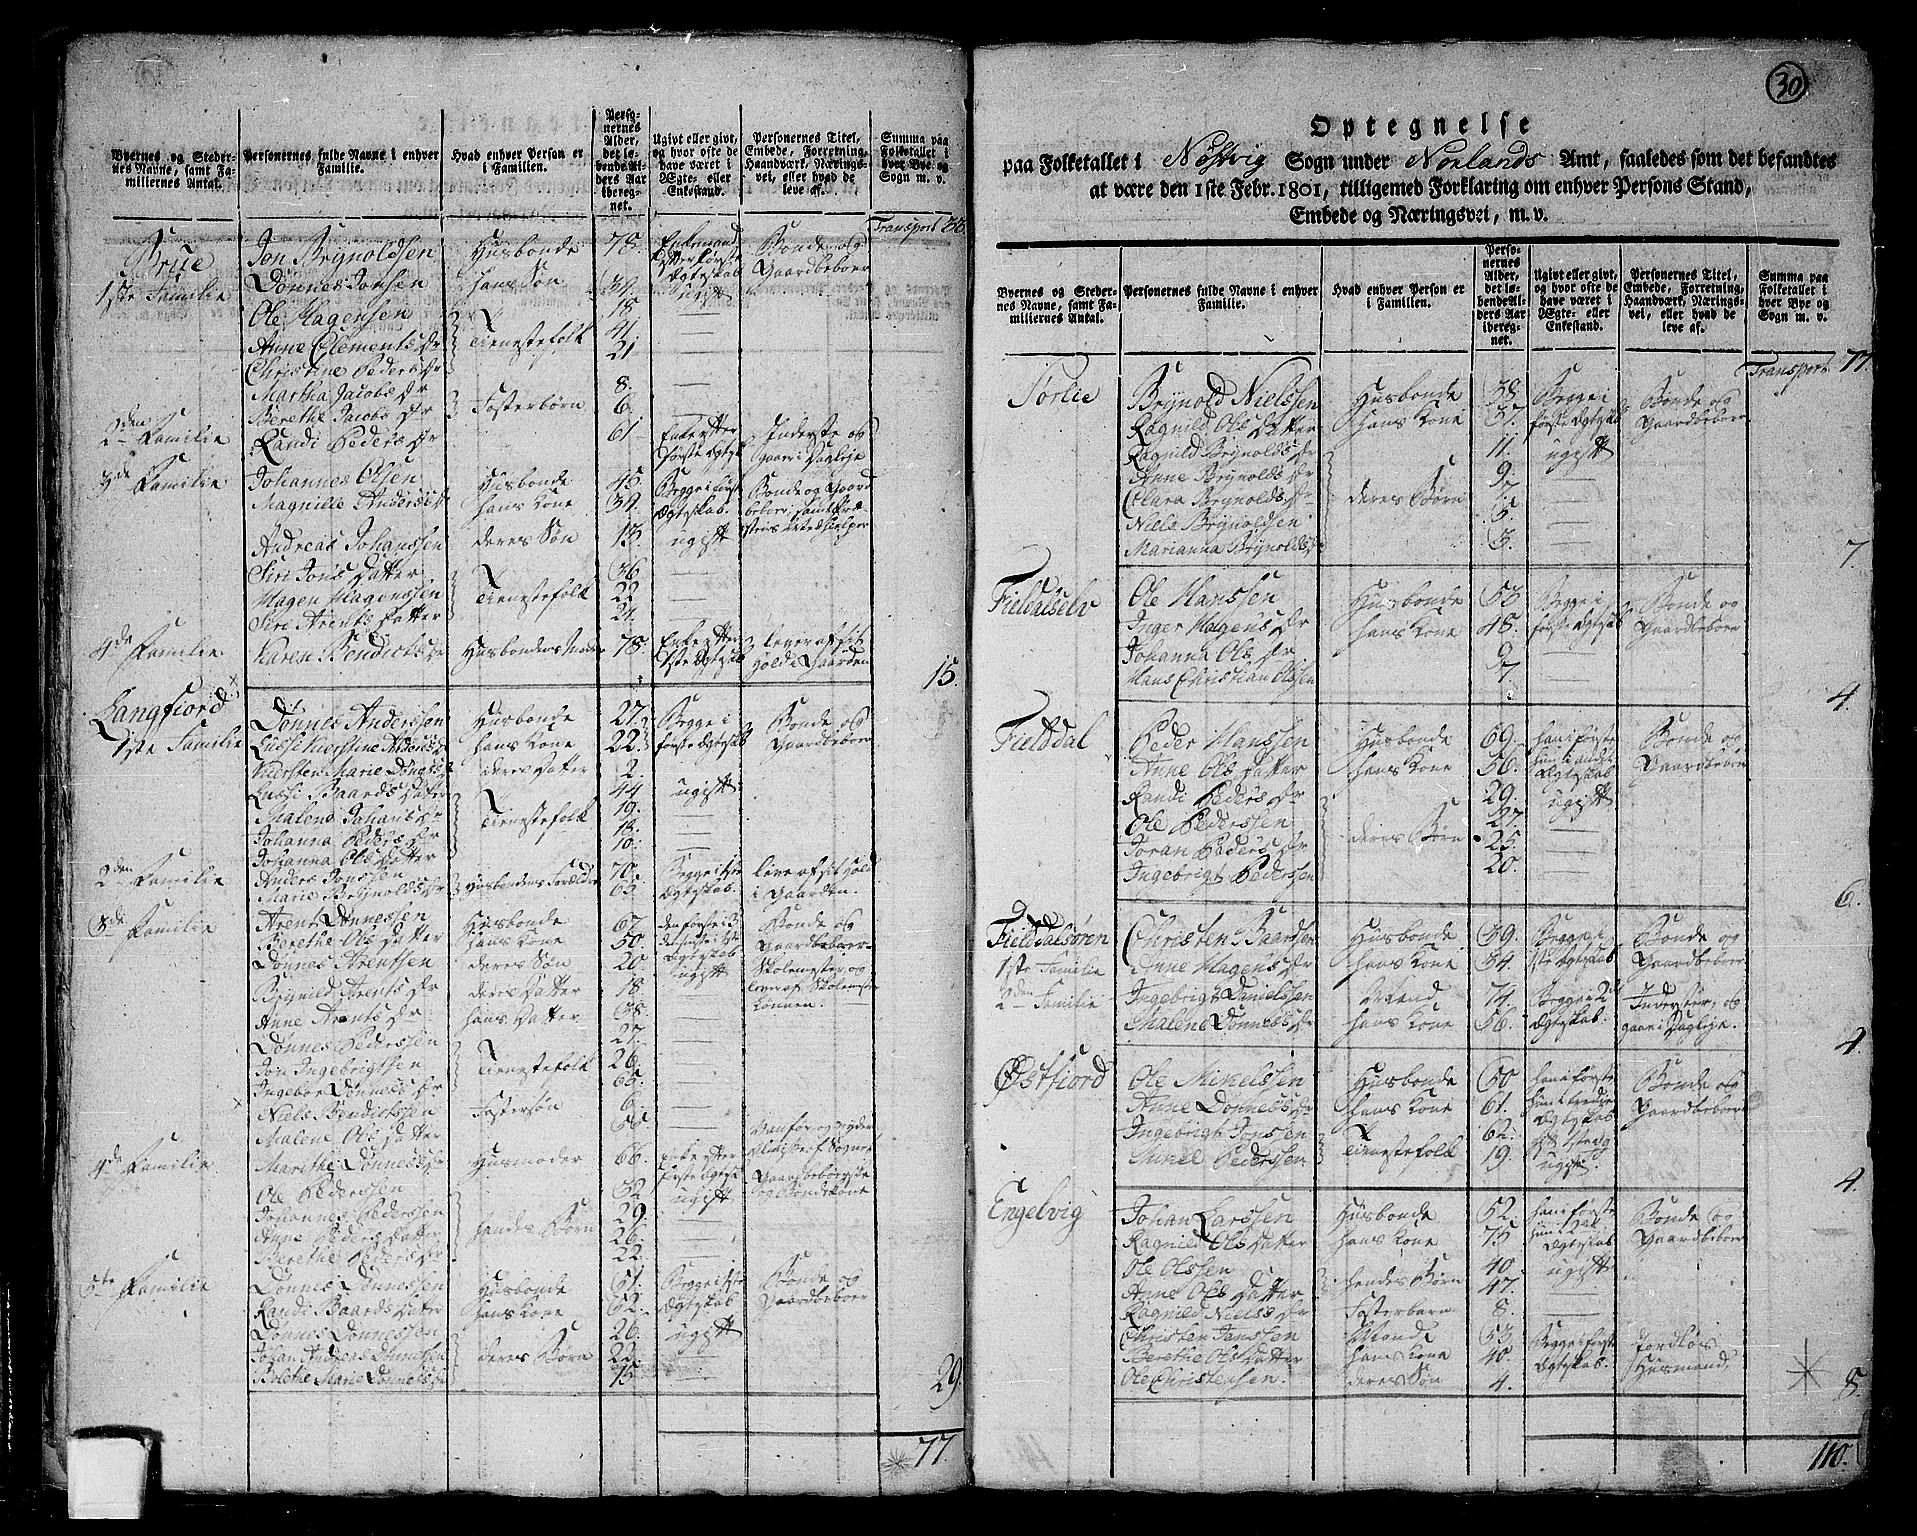 Byernes og Stedernes Navne, samt Familiernes Antal.
Personernes fulde Navne i enhver Familie.
Hvad enhver Person er i Familien.
Personernes Alder, det løbende Alders Aar iberegnet.
Ugivt eller givt, og hvor ofte de have været i Ægte- eller Enkestand.
Personernes Titel, Embede, Forretning, Haandværk, Næringsvei, eller hvad de leve af.
Summa paa Folketallet i hver Bye og Sogn m. v.
Transport 33
Brüe
1ste Familie
Jon Brynoldsen Husbonde 78. Enkemand efter første Ægteskab Bonde og Gaardbeboer
Dønnes Jonsen hans Søn 34. ugift
Ole Hagensen 18
Anne Clements Dr Tienestefolk 41.
Christine Peders Dr 21
Martha Jacobs Dr 8.
Berethe Jacobs Dr Fosterbørn 6.
2den Familie Randi Peders Dr 61. Enke efter første Ægtsk. Inderste og Gaar i Dagleje
3de Familie Johannes Olsen Husbonde 45. Begge i første Ægteskab. Bonde og Gaardbeboer
Magnilie Anders Dr hans Kone 34.
Andreas Johanssen deres Søn 13. ugift
Siri Jons Datter 36
Hagen Hagenssen Tienestefolk 22
Siri Arents Datter 24.
4de Familie Karen Bendicts Dr Husbondens Moder 78. Enke efter 1ste Ægteskab lever af sit hold i Gaarden
15.
Langfiord
1ste Familie
Dønnes Anderssen Husbonde 27. Begge i første Ægteskab Bonde og Gaardbeboer
hans Kone 22.
Kiersten Marie Dønes Dr deres Datter 2.
Lussi Baards Datter 44 ugift
Malena Johans Dr Tienestefolk 19.
Johanna Peders Dr 13.
Johanna Ols Datter 10.
2den Familie Anders Jonssen 70. Begge i 1ste Ægteskab. leve af sit hold i Gaarden.
Marie Brynolds Dr Husbondens Forældre 63.
3de Familie Arent Dønnessen Husbonde 67.
Berethe Ols Datter hans Kone 50. Bonde og Gaardbeboer
Dønnes Arentsen deres Søn 20. ugift Skolemester og lever af Skolemester Lønnen.
Brynild Arents Dr deres Datter 18
Anne Arents Dr hans Datter 38.
Dønnes Pederssen 27.
Jon Ingebrigtsen Tienestefolk 26.
Ingebor Dønness Dr 65.
Niels Bendictssen Fostersøn 6.
Malene Ols Datter
4de Familie Marithe Dønness Dr Husmoder 66. Enke efter første Ægtesk.
Ole Pederssen 32 ugift
Johannes Pederssen 29.
Anne Peders Datter hendes Børn 26.
Berethe Peders Dr 22.
5te Familie Dønnes Dønnessen Husbonde 61. Begge i 1ste Ægteskab Bonde og Gaardbeboer
Randi Baards Datter hans Kone 62.
Dønnes Dønnessen 26. ugift
Johan Andreas Dønnessen deres Børn 22.
Bolethe Marie Dønness Dr 15.
29.
77.
30
Optegnelse
paa Folketallet i Næsvig Sogn under Norlands Amt, saaledes som det befandtes
at være den 1ste Febr. 1801, tilligemed Forklaring om enhver Persons Stand,
Embede og Næringsvei, m. v.
Byernes og Stedernes Navne, samt Familiernes Antal.
Personernes fulde Navne i enhver Familie.
Hvad enhver Person er i Familien.
Personernes Alder, det løbende Alders Aar iberegnet.
Ugivt eller givt, og hvor ofte de have været i Ægte- eller Enkestand.
Personernes Titel, Embede, Forretning, Haandværk, Næringsvei, eller hvad de leve af.
Summa paa Folketallet i hver Bye og Sogn m. v.
Transport 77.
Torlie
Brynold Nielssen Husbonde 38. Begge i første Ægteskab Bonde og Gaardbeboer
Ragnild Ols Datter hans Kone 37.
Ragnild Brynolds Dr 11. ugift
Anne Brynolds Dr 9.
Clara Brynolds Dr deres Børn 7.
Niels Brynoldsen 5.
Marianna Brynolds Dr 3.
7.
Fieldelv
Ole Hanssen Husbonde 53 Begge i første Ægteskab Bonde og Gaardbeboer
Inger Hagens Dr hans Kone 48.
Johanna Ols Dr 9
Hans Christian Olssen 7.
4.
Fielddal
Peder Hanssen Husbonde 69. han i første hun i andet Ægteskab Bonde og Gaardbeboer
Anne Ols Datter hans Kone 56.
Randi Peders Dr 29. ugift
Ole Pederssen 27.
Joran Peders Dr deres Børn 25.
Ingebrigt Pederssen 20.
6.
Fielddalsøren
1ste Familie
Christen Baardsen Husbonde 39. Begge i 1ste Ægteskab Bonde og Gaardbeboer
Anne Hagens Dr hans Kone 34.
2den Familie Ingebrigt Danielssen Mand 74. Begge i 2det Ægteskab. Inderster, og gaar i Dagleje.
Malene Dønness Dr hans Kone 56.
4.
Østfiord
Ole Mikelssen Husbonde 50 han i første hun i tredie Ægteskab Bonde og Gaardbeboer
Anne Dønness Dr hans Kone 61.
Ingebrigt Jonssen 62.
Mikel Pederssen Tienestefolk 19. ugift.
4.
Engelvig
Johan Larssen Husbonde 52. han i første hun i 2det Ægteskab Bonde og Gaardbeboer
Ragnild Ols Datter hans Kone 75.
Ole Olssen 40. ugift
Anne Ols Datter hendes Børn 47.
Ragnild Niels Dr Fosterbarn 8.
Christen Jenssen Mand 53 Begge i første Ægteskab. Jordløs Husmand,
Berethe Ols Datter hans Kone 40.
Ole Christensen. deres Søn 4.
8.
110.